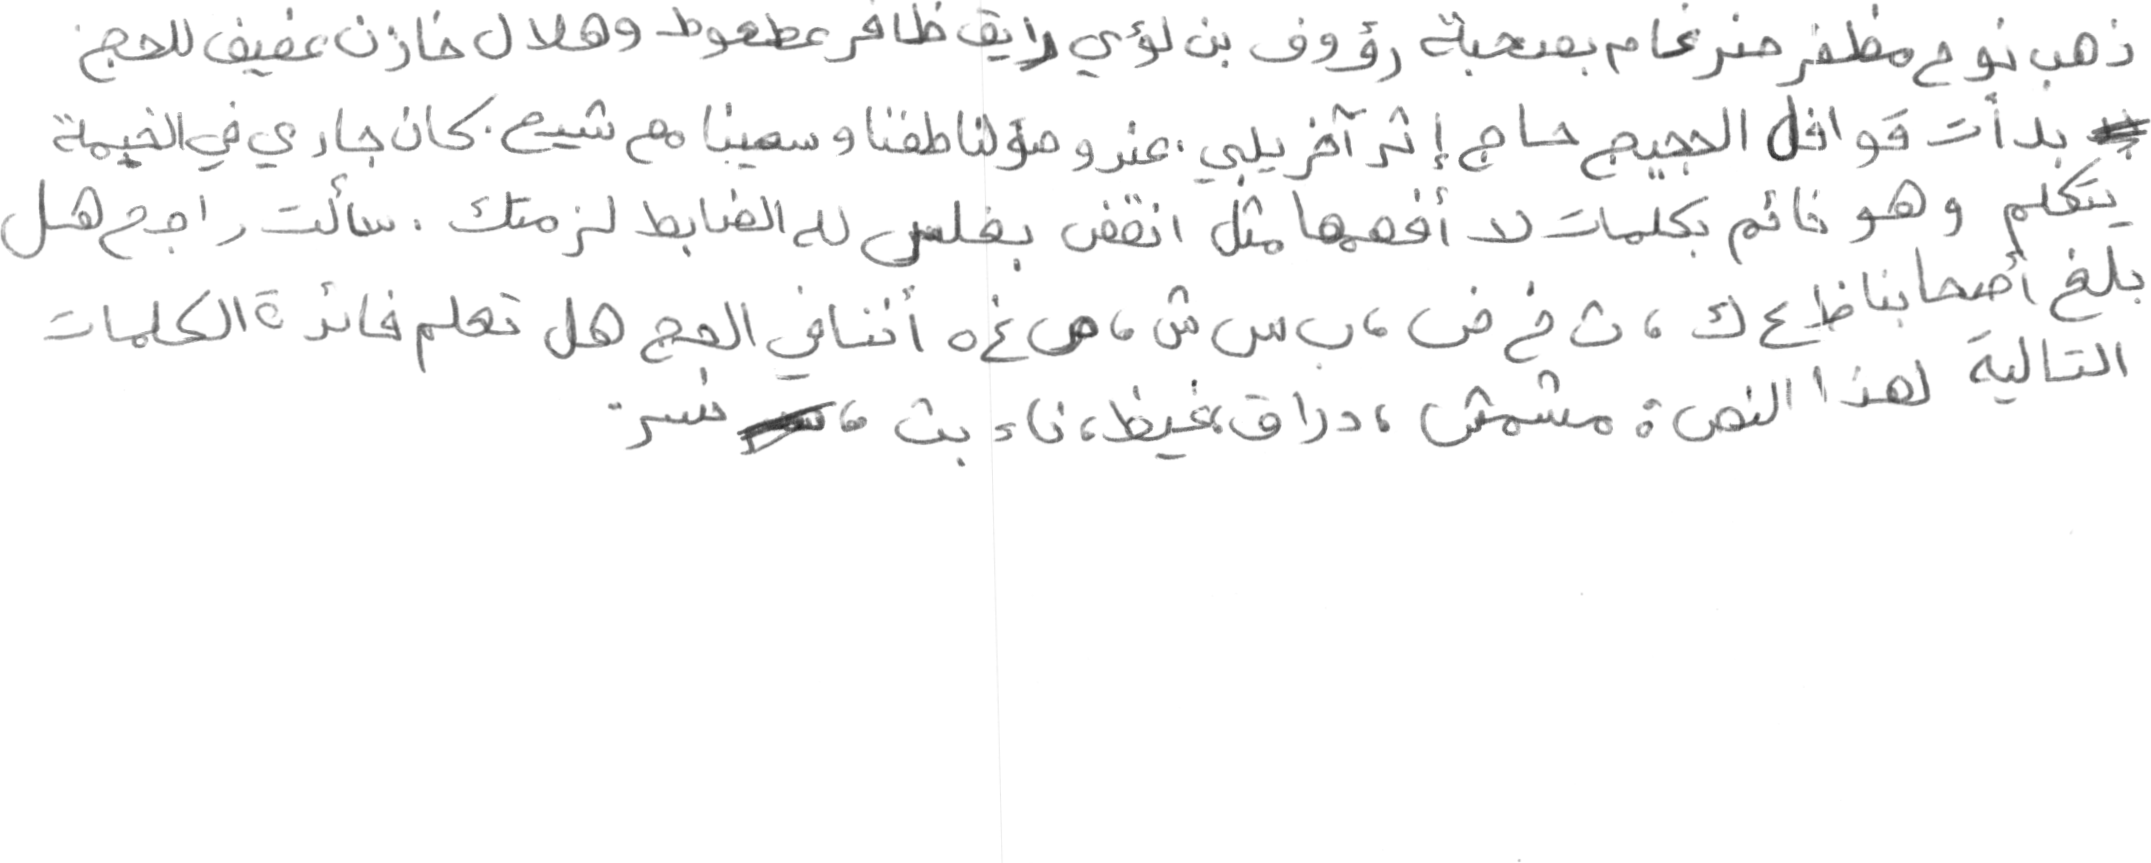 ذهب نوح مظفر ضرغام بصحبة رؤوف بن لؤي رايق ظافر عطعوط وهلال خازن عفيف للحج
بدأت قوافل الحجيج حاج إثر آخر يلبي. عند وصولنا طفنا وسعينا مع شيح. كان جاري في الخيمة
يتكلم وهو نائم بكلمات لا أفهمها مثل انقض بغلس لله الضابط لزمتك. سألت راجح هل
بلغ أصحابنا ظ ع ك ، ث خ ض ، ب س ش ، ص غ ه أننا في الحج هل تعلم فائدة الكلمات
التالية لهذا النص : مشمش ، دراق ، غيظ ، ناء بث ، نسر